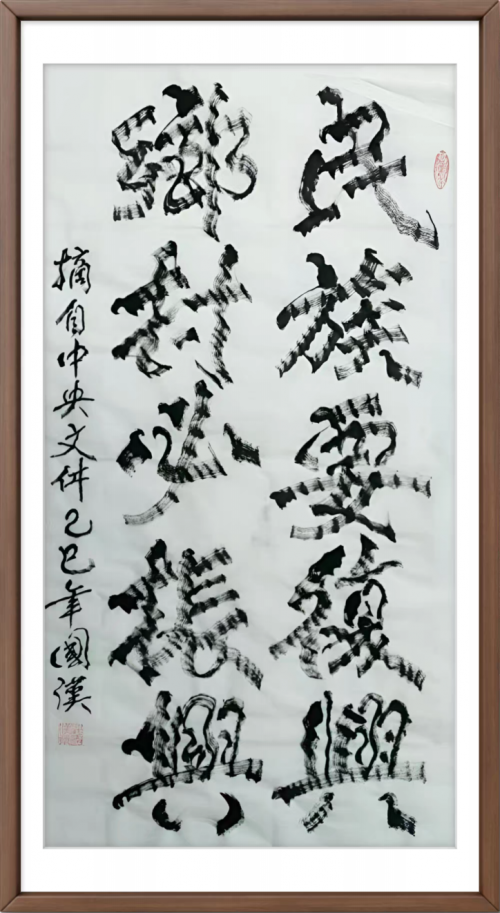 民族要復興
鄉村必振興
摘自中央文件乙巳年國漢